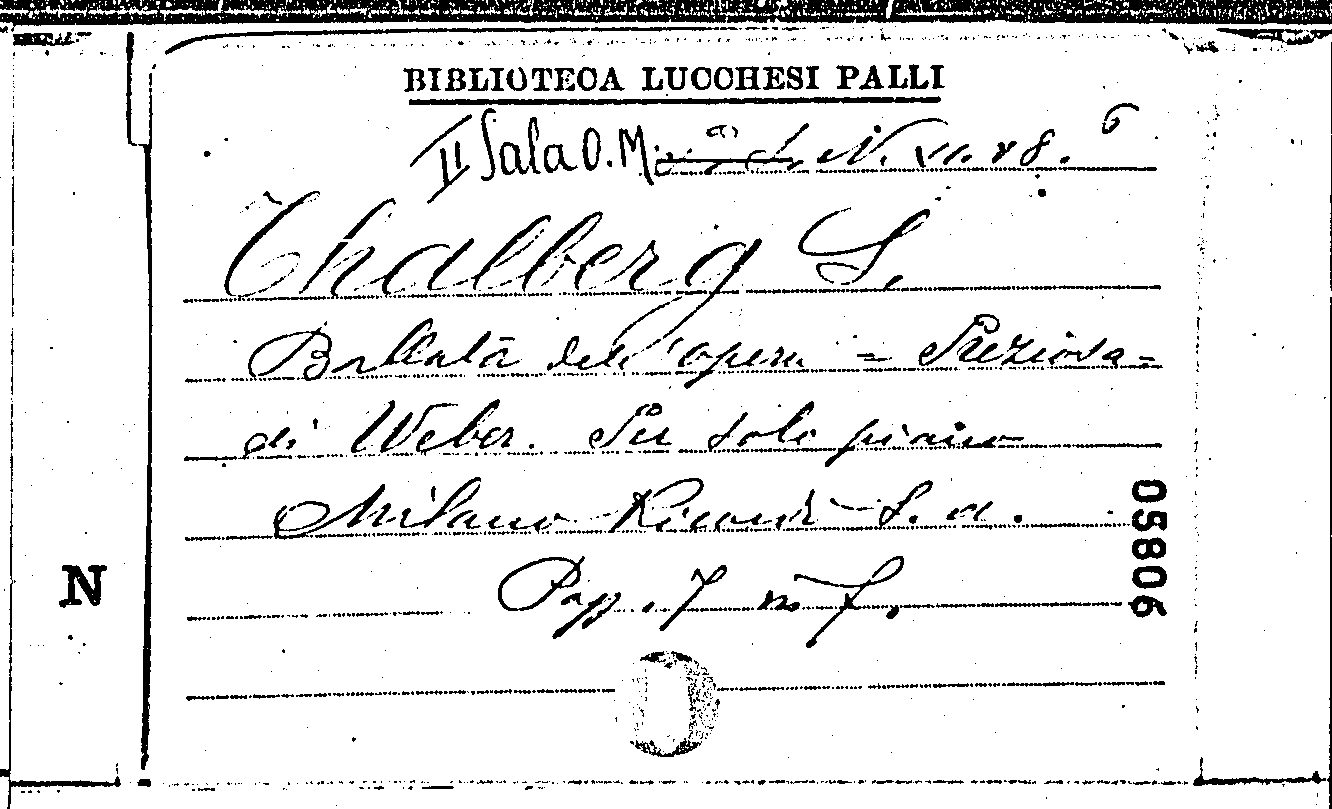 BIBLIOTECA LUCCHESI PALLI
II Sala O. M. N. VI. 88. 6
Thalberg S.
Ballata dell'opera = Preziosa =
di Weber. Per solo piano
Milano Ricordi S. a.
Pag. 7 in f.
05806
N